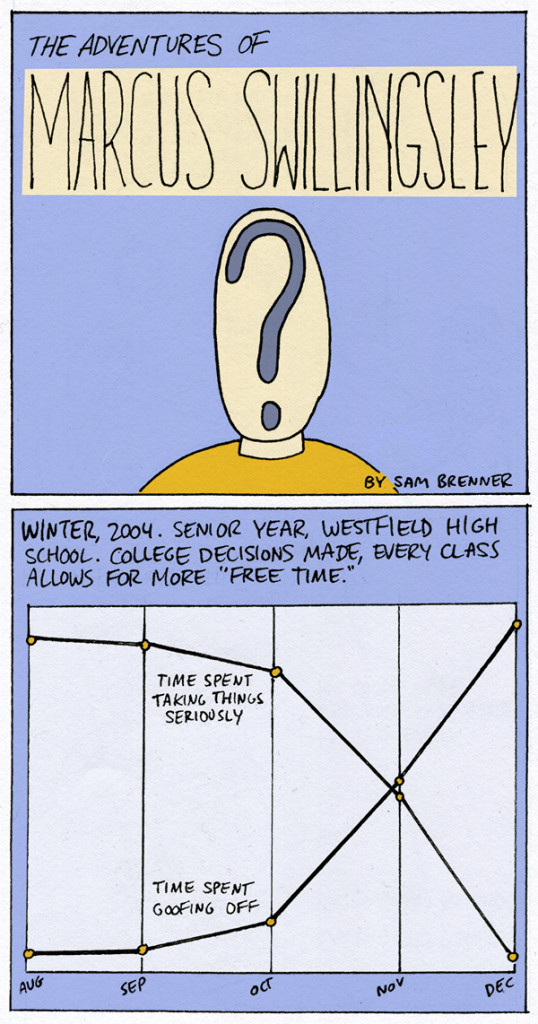 THE ADVENTURES OF
MARCUS SWILLINGSLEY
?
BY SAM BRENNER
WINTER, 2004. SENIOR YEAR, WESTFIELD HIGH
SCHOOL. COLLEGE DECISIONS MADE, EVERY CLASS
ALLOWS FOR MORE "FREE TIME."
TIME SPENT
TAKING THINGS
SERIOUSLY
TIME SPENT
GOOFING OFF
AUG SEP OCT NOV DEC